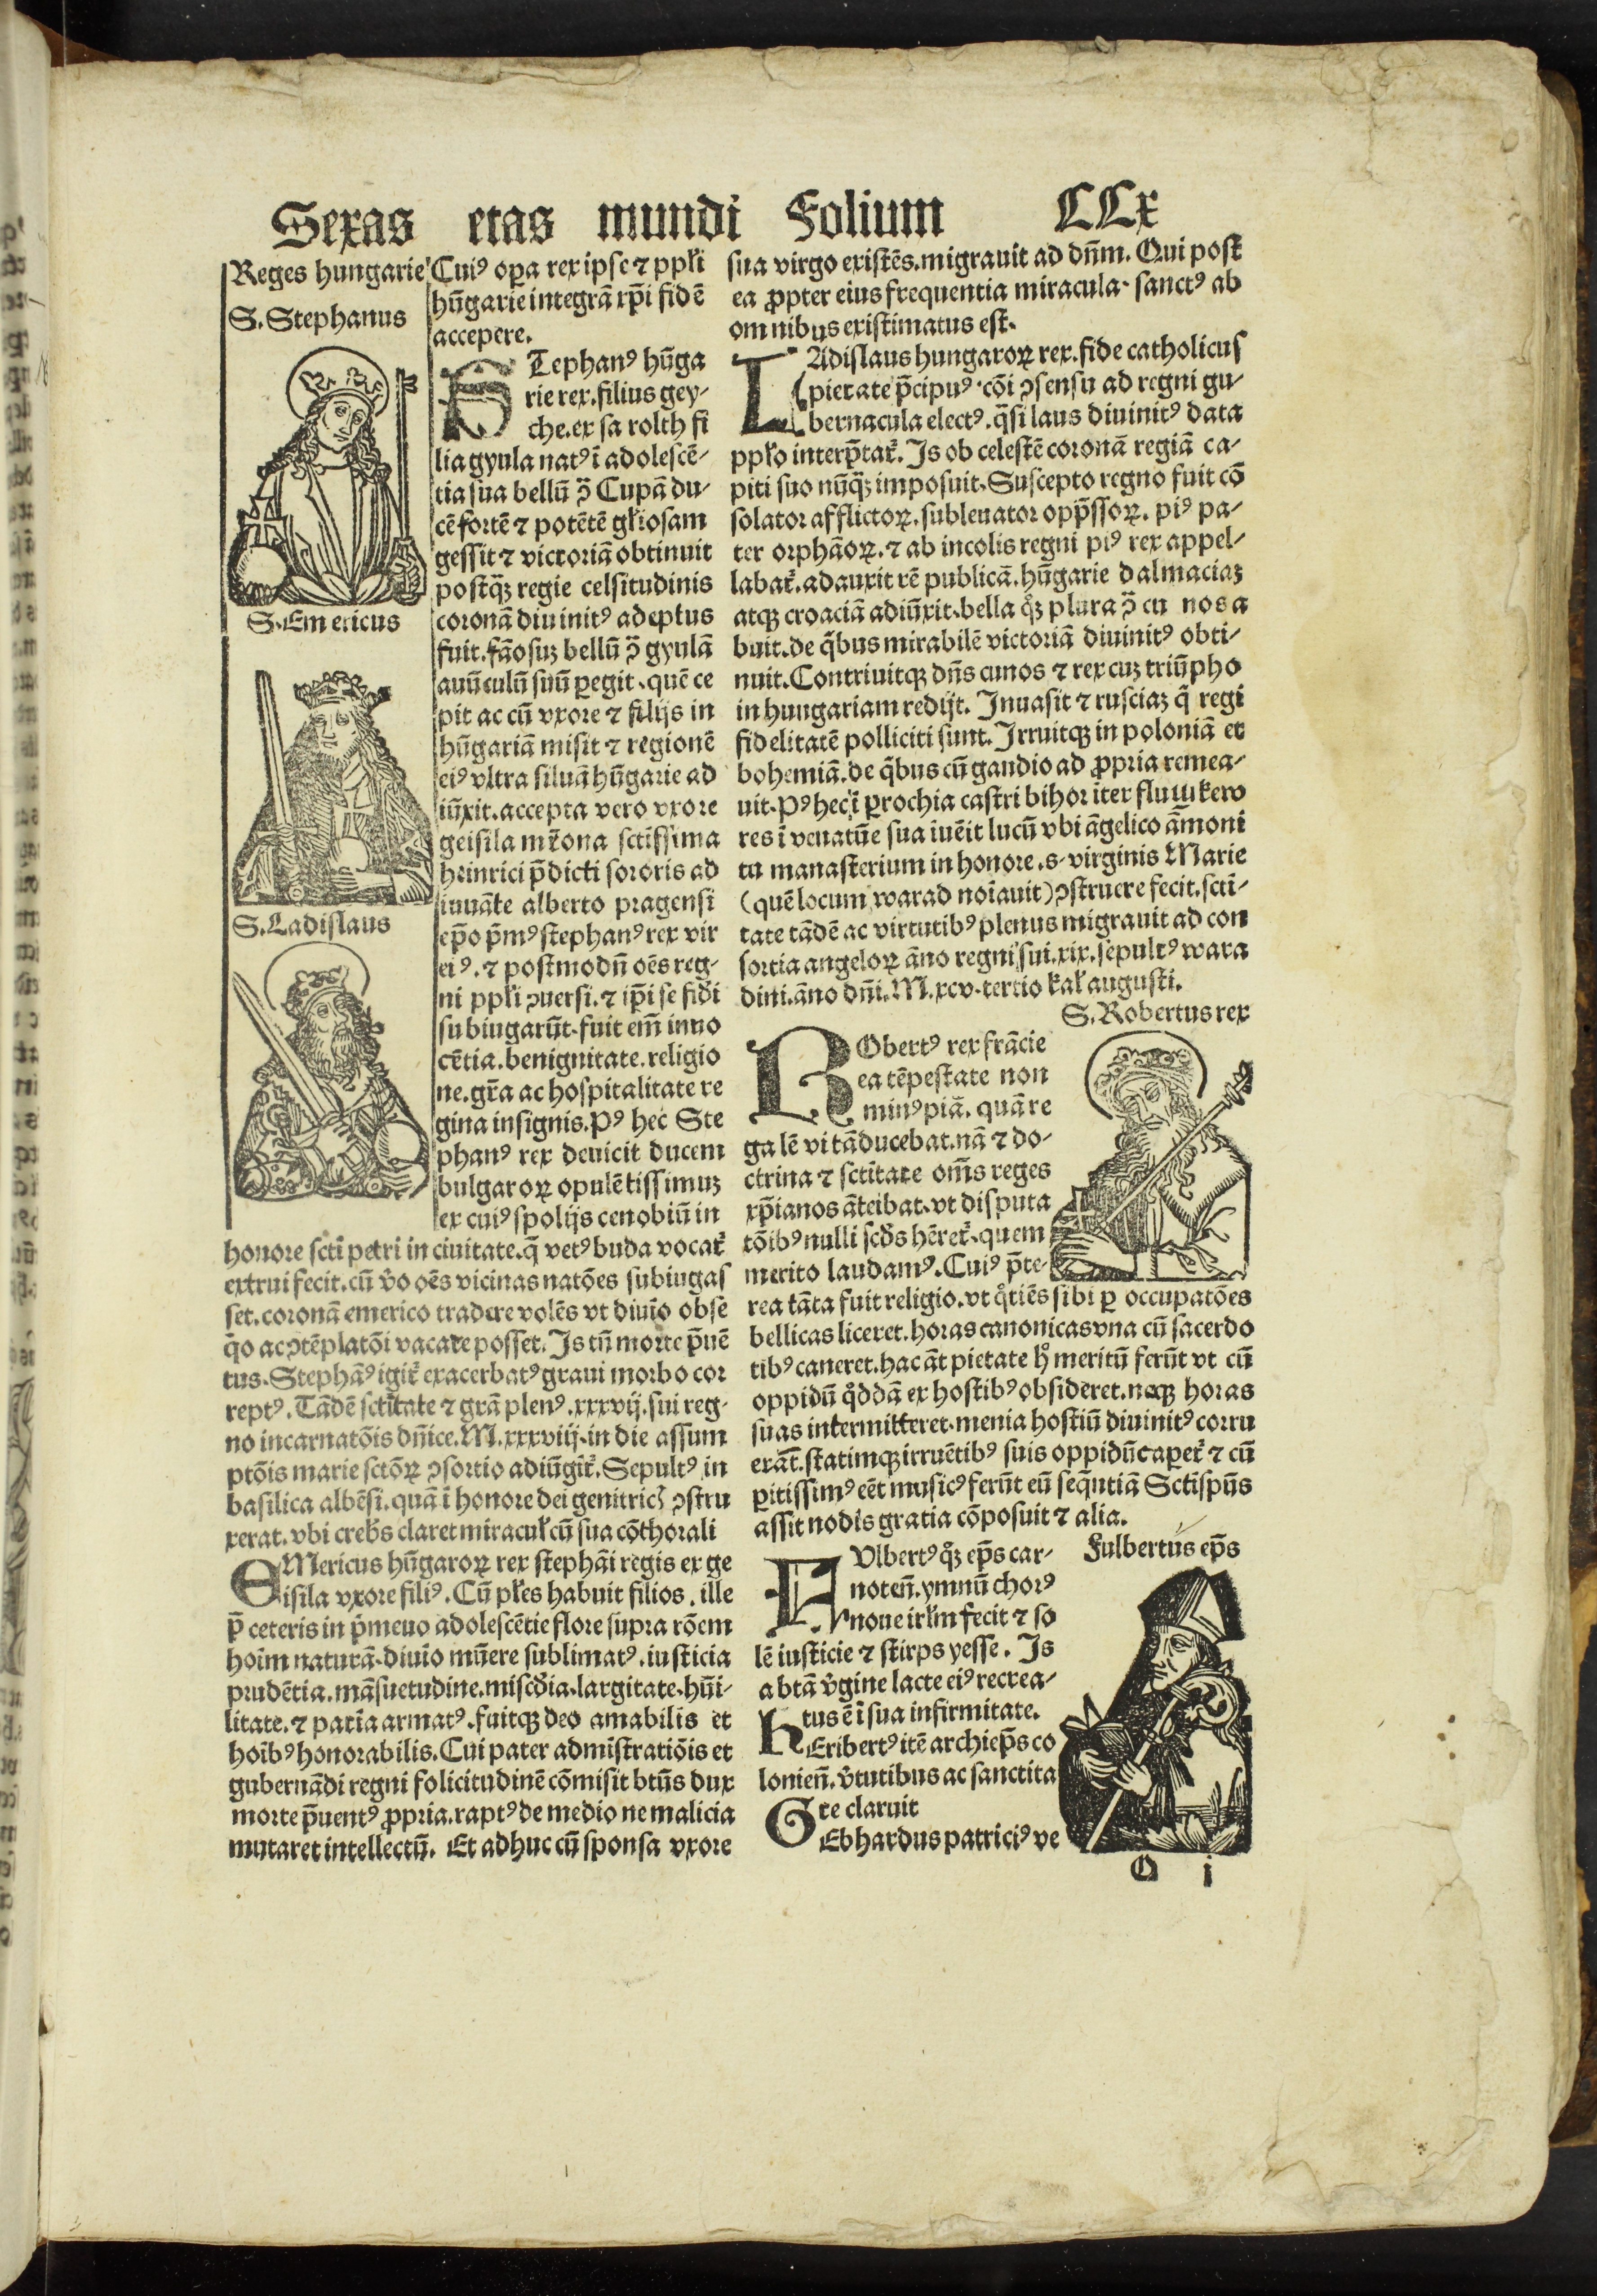 Sexas etas mundi Folium CCx
Reges hungarie
S. Stephanus
S. Emericus
S. Ladislaus
Cuiꝰ oꝑa rex ipse ⁊ ppl̄i
hūgarie integrā xp̄i fidē
accepere.
STephanꝰ hūga
rie rex. filius gey-
che. ex sarolth fi
lia gyula natꝰ ī adolescē-
tia sua bellū ↄ̄ Cupā du-
cē fortē ⁊ potētē gl̄iosam
gessit ⁊ victoriā obtinuit
postqꝫ regie celsitudinis
coronā diuinitꝰ adeptus
fuit. fāosuꝫ bellū ↄ̄ gyulā
auūculū suū ꝑegit. quē ce
pit ac cū vxore ⁊ filijs in
hūgariā misit ⁊ regionē
eiꝰ vltra siluā hūgarie ad
iūxit. accepta vero vxore
geisila mr̄ona sctīssima
heinrici p̄dicti sororis ad
iuuāte alberto pragensi
ep̄o p̄mꝰ stephanꝰ rex vir
eiꝰ. ⁊ postmodū oēs reg-
ni ppl̄i ↄuersi. ⁊ ip̄i se fidei
subiugarūt. fuit em̄ inno
cētia. benignitate. religio
ne. gr̄a ac hospitalitate re
gina insignis. Pꝰ hec Ste
phanꝰ rex deuicit ducem
bulgaroꝝ opulētissimuꝫ
ex cuiꝰ spolijs cenobiū in
honore sctī petri in ciuitate. q̄ vetꝰ buda vocat᷑
extrui fecit. cū v̊o oēs vicinas natōes subiugas
set. coronā emerico tradere volēs vt diuīo obse
q̄o ac ↄtēplatōi vacare posset. Is tū morte p̄uē
tus. Stephāꝰ igit᷑ exacerbatꝰ graui morbo cor
reptꝰ. Tādē sctītate ⁊ grā plenꝰ. xxxvij. sui reg-
no incarnatōis dn̄ice. M. xxxviij. in die assum
ptōis marie sctōꝝ ↄsortio adiūgit᷑. Sepultꝰ in
basilica albēsi. quā ī honore dei genitricꝭ ↄstru
xerat. vbi creb̄s claret miracul̄ cū sua cōthorali
EMericus hūgaroꝝ rex stephāi regis ex ge
isila vxore filiꝰ. Cū pl̄es habuit filios. ille
p̄ ceteris in p̄meuo adolescētie flore supra rōem
hoīm naturā. diuīo mūere sublimatꝰ. iusticia
prudētia. māsuetudine. misc̄dia. largitate. hūi-
litate. ⁊ patīa armatꝰ. fuitqꝫ deo amabilis et
hoībꝰ honorabilis. Cui pater admīstratiōis et
gubernādi regni solicitudinē cōmisit btūs dux
morte p̄uentꝰ ꝓpria. raptꝰ de medio ne malicia
mutaret intellectū. Et adhuc cū sponsa vxore
sua virgo existēs. migrauit ad dn̄m. Qui post
ea ꝓpter eius frequentia miracula. sanctꝰ ab
omnibus existimatus est.
LAdislaus hungaroꝝ rex. fide catholicus
pietate p̄cipuꝰ. cōi ↄsensu ad regni gu-
bernacula electꝰ. q̄si laus diuinitꝰ data
ppl̄o interp̄tat᷑. Is ob celestē coronā regiā ca-
piti suo nūqꝫ imposuit. Suscepto regno fuit cō
solator afflictoꝝ. subleuator opp̄ssoꝝ. piꝰ pa-
ter orphāoꝝ. ⁊ ab incolis regni piꝰ rex appel-
labat᷑. adauxit rē publicā. hūgarie dalmaciaꝫ
atqꝫ croaciā adiūxit. bella qͦꝫ plura ↄ̄ cu nos a
buit. de q̄bus mirabilē victoriā diuinitꝰ obti-
nuit. Contriuitqꝫ dn̄s cunos ⁊ rex cuꝫ triūpho
in hungariam redijt. Inuasit ⁊ rusciaꝫ q̄ regi
fidelitatē polliciti sunt. Irruitqꝫ in poloniā et
bohemiā. de q̄bus cū gaudio ad ꝓpria remea-
uit. Pꝰ hec ī ꝑrochia castri bihor iter fluuiū kerw
res ī venatūe sua īuēit lucū vbi āgelico āmoni
tu manasterium in honore. s. virginis Marie
(quē locum warad noīauit) ↄstruere fecit. sctī-
tate tādē ac virtutibꝰ plenus migrauit ad con
sortia angeloꝝ āno regni sui. xix. sepultꝰ wara
dini. āno dn̄i. M. xcv. tertio kal̄ augusti.
S. Robertus rex
RObertꝰ rex frācie
ea tēpestate non
minꝰ piā. quā re
galē vitā ducebat. nā ⁊ do-
ctrina ⁊ sctītate om̄s reges
xp̄ianos āteibat. vt disputa
tōibꝰ nulli scd̄s hēret᷑. quem
merito laudamꝰ. Cuiꝰ p̄te-
rea tāta fuit religio. vt qͦtiēs sibi ꝑ occupatōes
bellicas liceret. horas canonicas vna cū sacerdo
tibꝰ caneret. hac āt pietate hͦ meritū ferūt vt cū
oppidū qͦddā ex hostibꝰ obsideret. neqꝫ horas
suas intermitteret. menia hostiū diuinitꝰ corru
erāt. statimqꝫ irruētibꝰ suis oppidū caꝑet᷑ ⁊ cū
ꝑitissimꝰ eēt musicꝰ ferūt eū seq̄ntiā Sctīsp̄us
assit nobis gratia cōposuit ⁊ alia.
Fulbertus ep̄s
FUlbertꝰ qͦꝫ ep̄s car-
noten̄. ymnū chorꝰ
noue irl̄m fecit ⁊ so
lē iusticie ⁊ stirps yesse. Is
a btā v̊gine lacte eiꝰ recrea-
tus ē ī sua infirmitate.
HEribertꝰ itē archiep̄s co
lonien̄. v̊tutibus ac sanctita
te claruit
GEbhardus patriciꝰ ve
O i